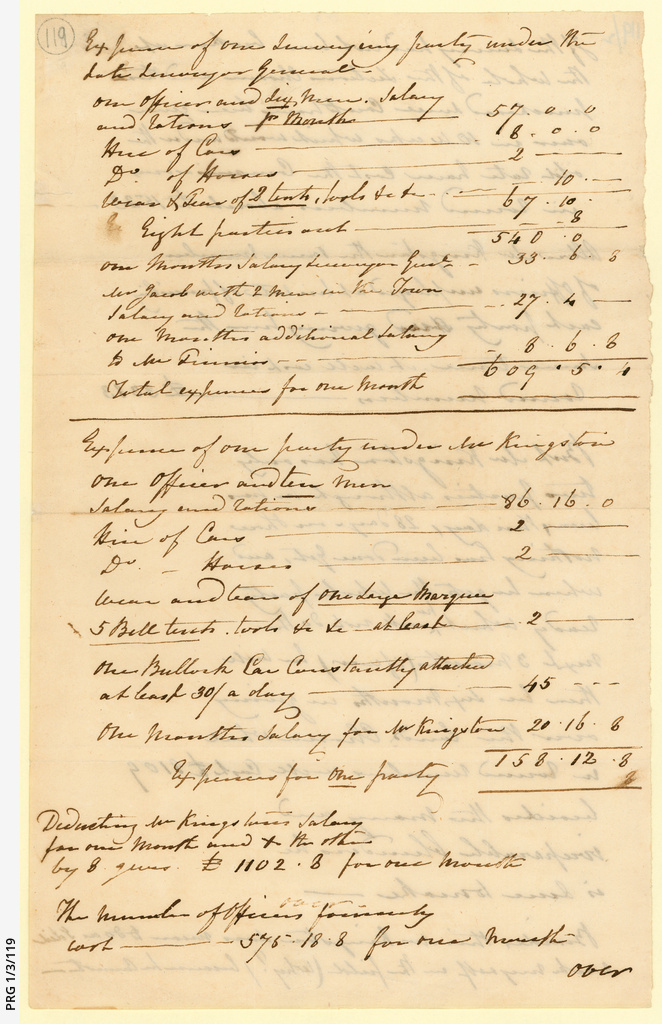 119
Expense of one Surveying party under the
late Surveyor General
one officer and six men. Salary
and rations pr Month 57 . 0 . 0
Hire of Cars 8 . 0 . 0
Do. of Horses 2
Wear & Tear of 2 tents, tools &c &c 10
67 . 10
Eight parties 8
540 . 0
one Months Salary Surveyor Genl. 33 . 6 . 8
Mr Jacob with 2 men in the Town
Salary and rations 27 . 4
one Months additional Salary
to Mr Finniss 8 . 6 . 8
Total expenses for one Month 609 . 5 . 4
Expense of one party under Mr Kingston
one Officer and ten Men
Salary and rations 86 . 16 . 0
Hire of Cars 2
Do. - Horses 2
Wear and tear of one Large Marquee
5 Bell tents. tools &c &c at least 2
One Bullock Car Constantly attached
at least 30/ a day 45
One Months Salary for Mr Kingston 20 . 16 . 8
158 . 12 . 8
Expences for one party 8
Deducting Mr Kingstons Salary
for one Month and x the other
by 8 gives £ 1102 . 8 for one Month
The number of Officers formerly
cost 575 . 18 . 8 for one Month
over
PRG 1/3/119